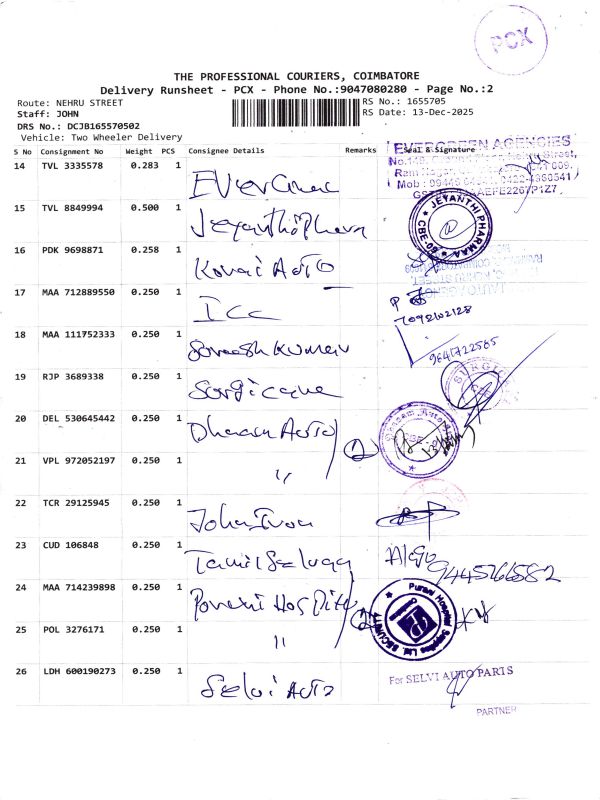 PCX
THE PROFESSIONAL COURIERS, COIMBATORE
Delivery Runsheet - PCX - Phone No.:9047080280 - Page No.:2
Route: NEHRU STREET
RS No.: 1655705
Staff: JOHN
RS Date: 13-Dec-2025
DRS No.: DCJB165570502
Vehicle: Two Wheeler Delivery
S No Consignment No Weight PCS Consignee Details Remarks Seal & Signature
EVERGREEN AGENCIES
14 TVL 3335578 0.283 1 Evergreen
15 TVL 8849994 0.500 1 Jeyanthi Pharma
JEYANTHI PHARMAA
16 PDK 9698871 0.258 1 Kovai Auto
17 MAA 712889550 0.250 1 ICC
7092102128
18 MAA 111752333 0.250 1 Sureesh Kumar
9641722565
19 RJP 3689338 0.250 1 Surgicare
20 DEL 530645442 0.250 1 Dhaasu Auto
2
21 VPL 972052197 0.250 1 "
22 TCR 29125945 0.250 1
23 CUD 106848 0.250 1 Tamil Selvan
24 MAA 714239898 0.250 1 Hospital
2
25 POL 3276171 0.250 1 "
26 LDH 600190273 0.250 1 Selvi Auto
For SELVI AUTO PARTS
PARTNER